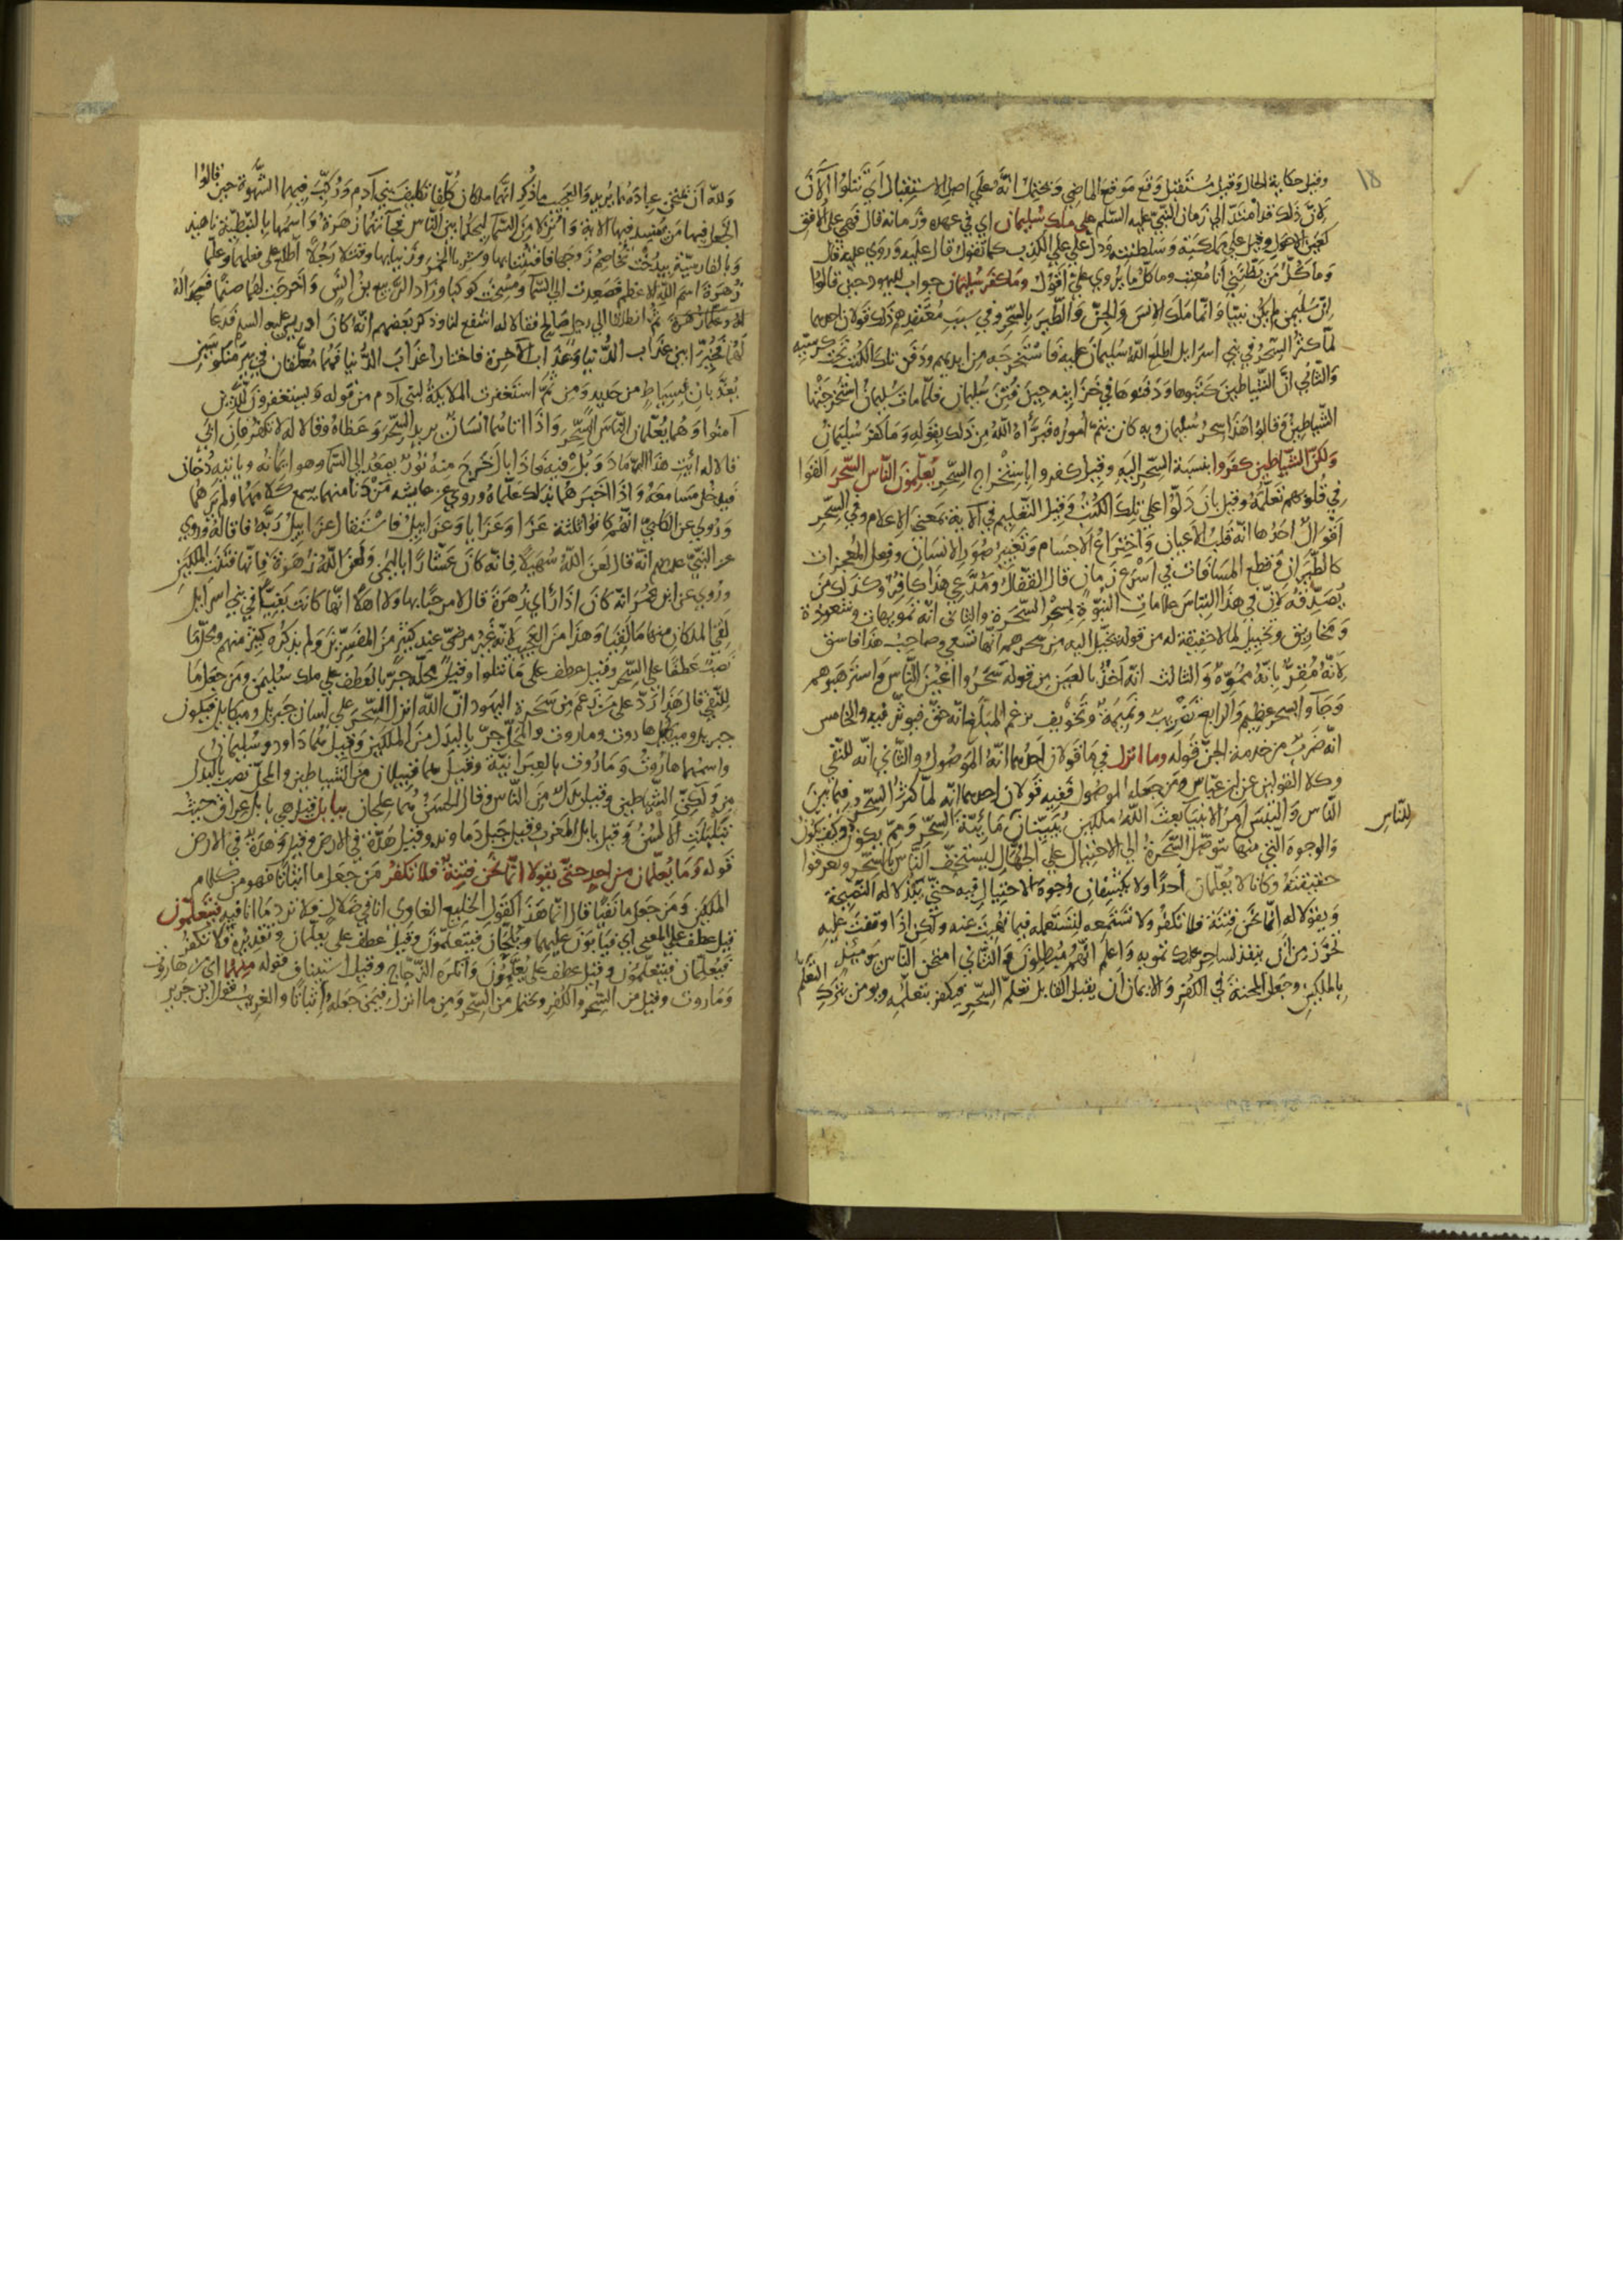 ١٨
وقيل حكاية الحال وقيل مستقبل وقع موقع الماضي ويحتمل انه على اصل الاستقبال اي تتلوا الآن
لانّ ذلك قد امتدّ الي زمان النبيّ عليه السّلم علي ملك سليمان اي في عهده وزمانه قال فهي على الافق
كعين الاحول وقيل علي مملكته وسلطنته ودل علي علي الكذب كما تقول قال عليه وروي عليه قال
وما كلّ من يظنّني انا معتب وما كلّ ما يروي عليّ اقول وما كفر سليمان جواب لليهود حين قالوا
انّ سليمن لم يكن نبيّا وانّما ملك الانس والجنّ والطّير بالسّحر وفي سبب معتقدهم ذلك قولان احدهما
لمّا كثر السّحر في بني اسرايل اطلع الله سليمان عليه فاستخرجه من ايديهم ودفن تلك الكتب تحت كرسيّه
والثّاني انّ الشّياطين كتبوها ودفنوها في خزاينه حين فتن سليمان فلمّا مات سليمان استخرجتها
الشّياطين وقالوا هذا سحر سليمان وبه كان تتمّ اموره فبرّأه الله من ذلك بقوله وما كفر سليمان
ولكنّ الشّياطين كفروا بنسبة السّحر اليه وقيل كفروا باستخراج السّحر يعلّمون النّاس السّحر القوا
في قلوبهم تعلّمه وقيل بان دلّوا علي تلك الكتب وقيل التّعليم في الآية بمعني الاعلام وفي السّحر
اقوال احدها انّه قلب الاعيان واختراع الاجسام وتغيير صور الانسان وفعل المعجزات
كالطّيران وقطع المسافات في اسرع زمان قال القفّال ومدّعي هذا كافر وكذلك من
يصدّقه لانّ في هذا التباس علامات النّبوّة بسحر السّحرة والثّاني انّه تمويهات وشعوذة
ومخاريق وتخييل لما لا حقيقة له من قوله يخيّل اليه من سحرهم انّها تسعي وصاحب هذا فاسق
لانّه مقرّ بانّه مموّه والثالث انّه اخذ بالعين من قوله سحروا اعين النّاس واسترهبوهم
وجآوا بسحر عظيم والرابع تضريب ونميمة وتخويف يزعم المبلّغ انّه حقّ فيوثر فيه والخامس
انّه ضرب من خدمة الجنّ قوله وما انزل في ما قولان احدهما انّه الموصول والثّاني انّه للنّفي
وكلا القولين عن ابن عبّاس ومن جعله الموصول ففيه قولان احدهما انّه لمّا كثر السّحر فيما بين
النّاس والتبس امر الانبيا بعث الله ملكين يبيّنان مائيّة السّحر وممّ يكون وكيف يكون
للنّاس
والوجوه الّتي منها يتوصّل السّحرة الي الاحتيال علي الجهّال ليستخفّ النّاس بالسّحر ويعرفوا
حقيقته وكانا لا يعلّمان احدًا ولا يكشفان وجوه الاحتيال فيه حتّي يبذلا له النّصيحة
ويقولا له انّما نحن فتنة فلا تكفر ولا تستعمله فيما نهيت عنه ولكن اذا وقفت عليه
تحرّز من ان ينفذ لساحر عليك تمويه واعلم انّهم مبطلون والثّاني امتحن النّاس يوميئذٍ
بالملكين وجعل المحنة في الكفر والايمان ان يقبل القابل تعلّم السّحر فيكفر بتعلّمه ويومن بترك التّعلّم
ولله ان يمتحن عباده بما يريد والعجب ما ذكر انّهما ملكان كلّفا تكليف بني آدم وركّب فيهما الشّهوة حين قالوا
اتجعل فيها من يفسد فيها الاية وانزلا من السّما ليحكما بين النّاس فجآتهما زهرة واسمها بالنّبطيّة ناهيد
وبالفارسيّة بيدخت تخاصم زوجها فافتتنا بها وشربا الخمر وزنيا بها وقتلا رجلًا اطّلع علي فعلهما وعلّما
زهرة اسم الله الاعظم فصعدت الي السّما ومسخت كوكبا وزاد الرّبيع بن انس واخرجت لهما صنمًا فسجدا له
ثمّ انطلقا الي رجل صالح فقالا له اشفع لنا وذكر بعضهم انّه كان ادريس عليه السلم فدعا
لهما فخيّرا بين عذاب الدّنيا وعذاب الآخرة فاختارا عذاب الدّنيا فهما معلّقان في بير منكوسين
يعذّبان بسياط من حديد ومن ثمّ استغفرت الملايكة لبني آدم من قوله ويستغفرون للّذين
آمنوا وهما يعلّمان النّاس السّحر واذا اتاهما انسان يريد السّحر وعظاه وقالا له لا تكفر فان ابي
قالا له ائت هذا الرّماد وبل فيه فاذا بال خرج منه نور يصعد الي السّما وهو ايمانه وياتيه دخان
فيدخل مسامعه واذا اخبرهما بذلك علّماه وروي عن عايشه من دنا منهما سمع كلامهما ولم يرهما
وروي عن الكلبيّ انّهم كانوا ثلثة عزا وعزايا وعزاييل فاستقال عزاييل ربّه فاقاله وروي
عن النّبيّ انّه قال لعن الله سهيلًا فانّه كان عشّارًا باليمن ولعن الله زهرة فانّها فتنت الملكين
وروي عن ابن عمر انّه كان اذا رأي زهرة قال لا مرحبًا بها ولا اهلًا انّها كانت بغيّا في بني اسرايل
لقي الملكان منها ما لقيا وهذا من العجب لانّه غير مرضيّ عند كثير من المفسّرين ولم يذكره كثير منهم ومحلّ ما
نصب عطفًا علي السّحر وقيل عطف علي ما تتلوا وقيل محلّه جرّ بالعطف علي ملك سليمن ومن جعل ما
للنّفي قال هذا ردّ علي من زعم من سحرة اليهود انّ الله انزل السّحر علي لسان جبريل وميكايل فيكون
جبريل وميكايل هاروت وماروت والمحلّ جرّ بالبدل من الملكين وقيل هما داود وسليمان
واسمهما هاروت وماروت بالعبرانيّة وقيل هما قبيلان من الشّياطين والمحلّ نصب بالبدل
من ولكنّ الشّياطين وقيل بدل من النّاس وقال الحسن هما علجان ببابل قيل هي بابل عراق حيث
تبلبلت الالسن وقيل بابل المغرب وقيل جبل دماوند وقيل هدّة في الارض وقيل وهدة في الارض
قوله وما يعلّمان من احد حتّى يقولا انّما نحن فتنة فلا تكفر من جعل ما اثباتًا فهو من كلام
الملكين ومن جعل ما نفيًا قال انّما هذا كقول الخليع الغاوي انا في ضلال فلا ترد ما انا فيه فيتعلّمون
قيل عطف علي المعني اي فيابون عليهما ويلحّان فيتعلّمون وقيل عطف علي يعلّمان وتقديره فلا تكفر
فيعلّمان فيتعلّمون وقيل عطف علي يعلّمون وانكره الزّجّاج وقيل استيناف قوله منهما اي من هاروت
وماروت وقيل من السّحر والكفر ويحتمل من السّحر ومن ما انزل فيمن جعله اثباتًا والغريب قول ابن جرير